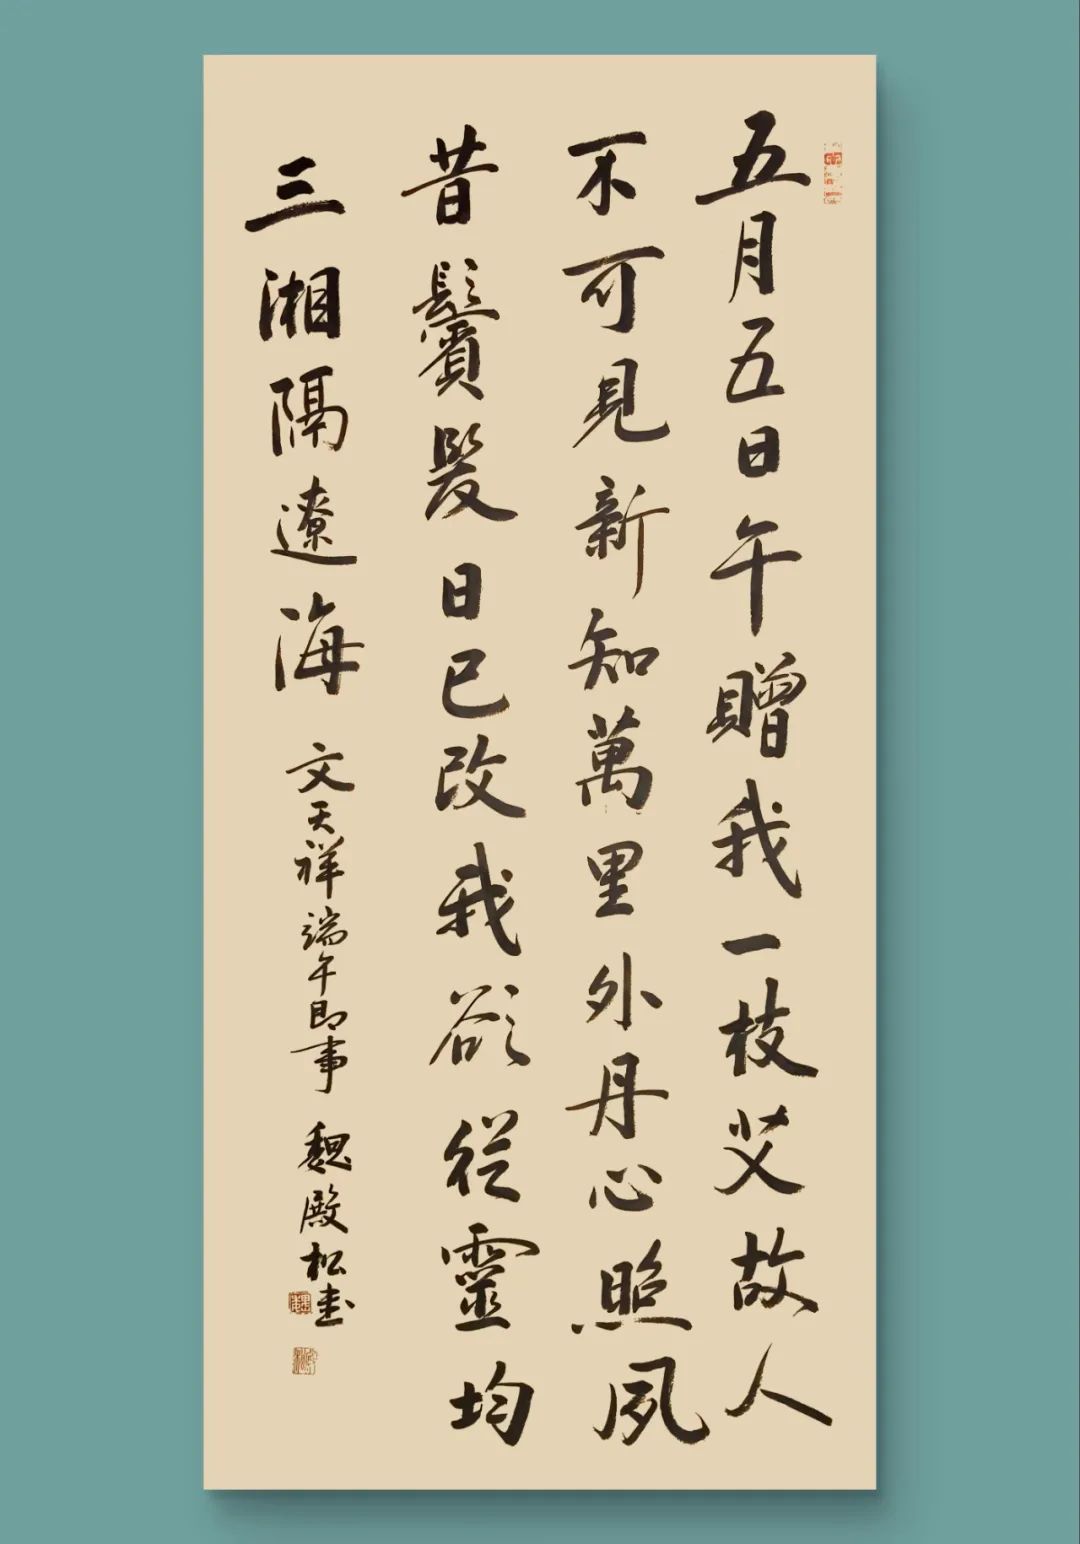 五月五日午贈我一枝艾故人
不可見新知萬里外丹心照夙
昔鬢髮日已改我欲從靈均
三湘隔遼海
文天祥端午即事 魏殿松書